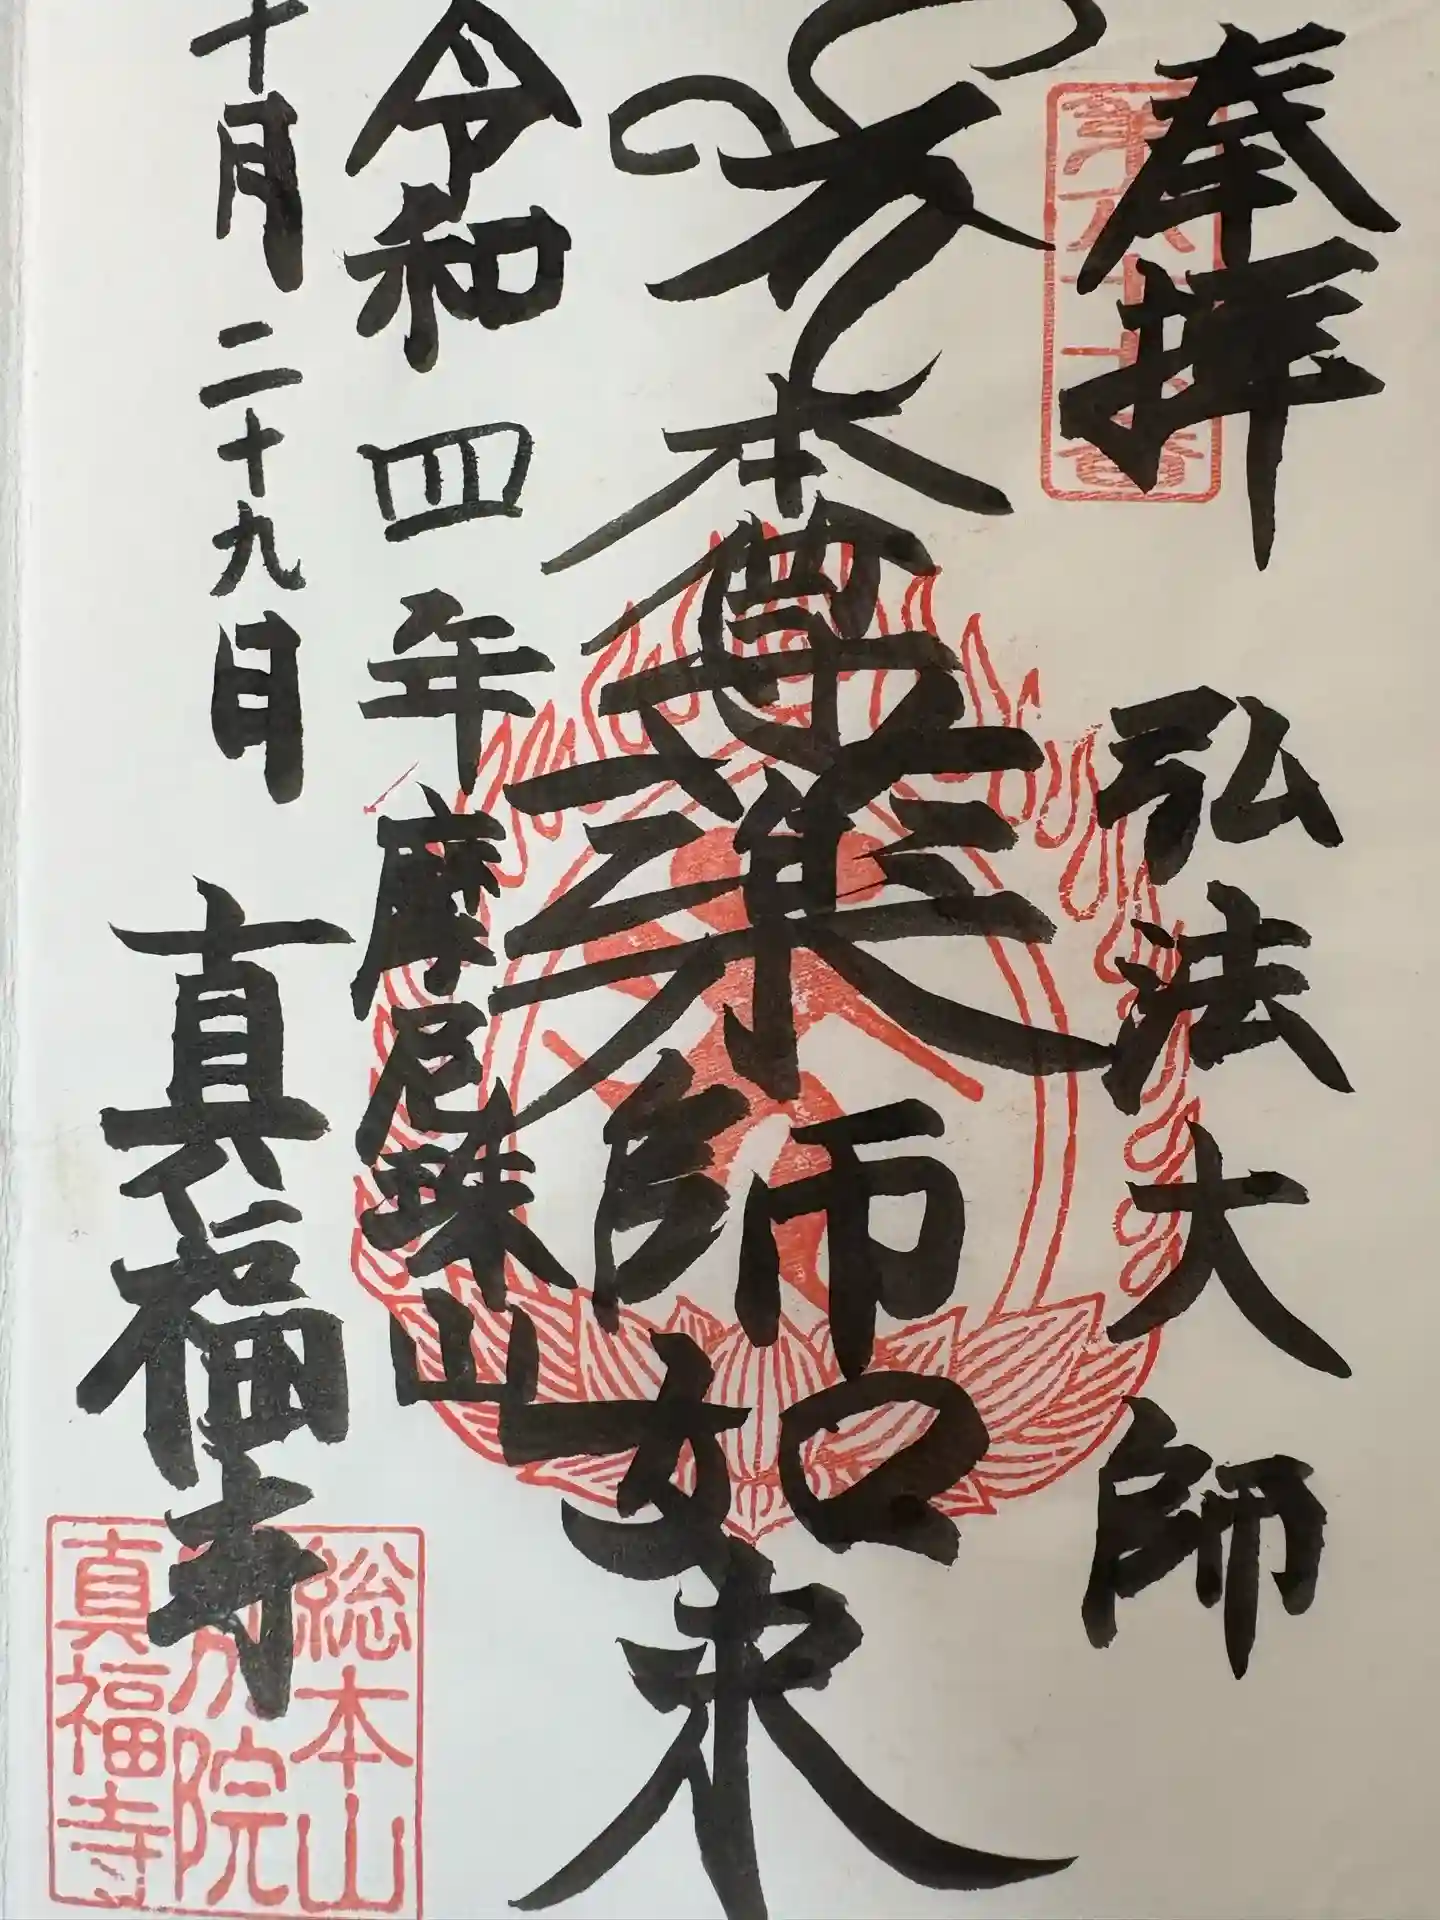 奉拝
弘法大師
本尊薬師如来
令和四年
摩尼珠山
十月二十九日
真福寺
総本山
別院
真福寺